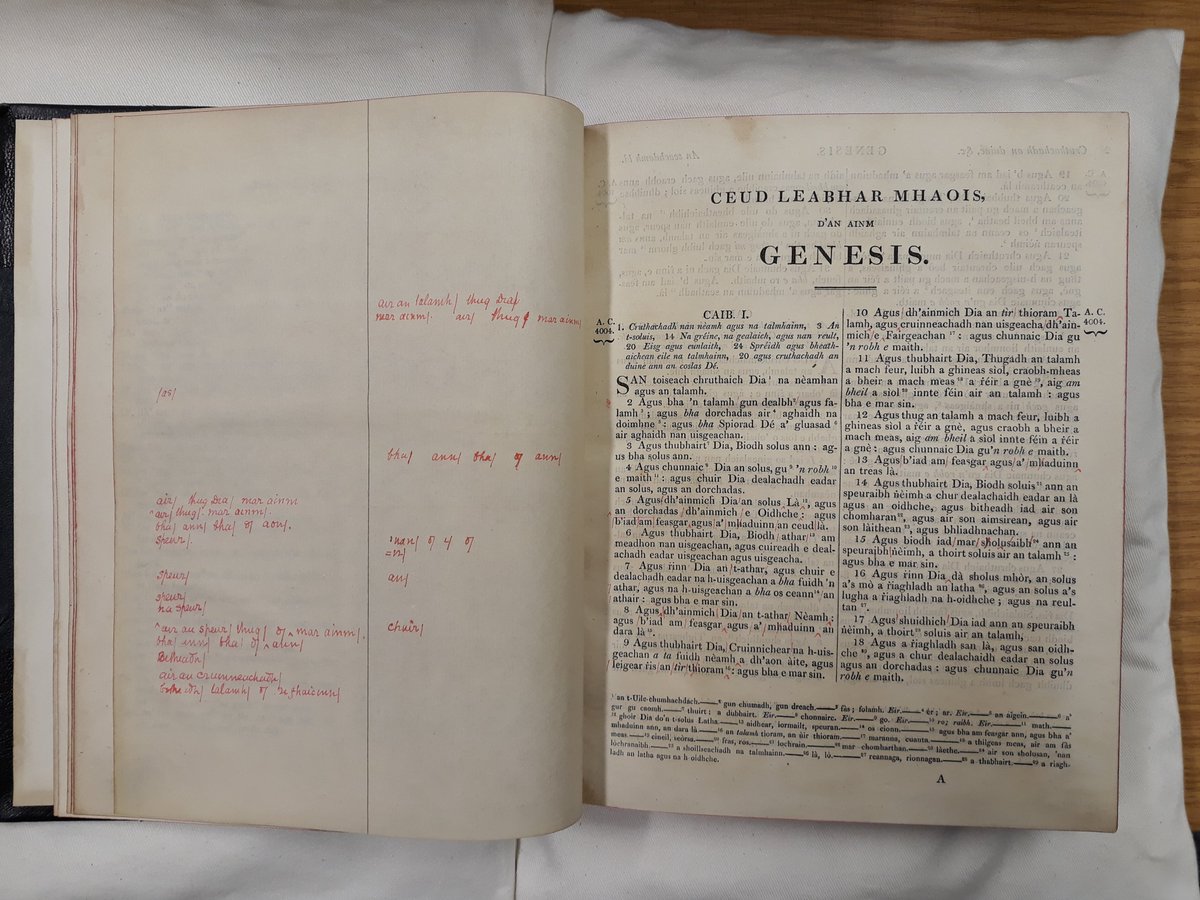 air an talamh/ thug Dia/
mar ainm/ air/ thug/ mar ainm/
/as/
bha/ ann/ bha/ ann/
air/ thug Dia/ mar ainm
air/ thug/ mar ainm/.
bha/ ann/ bha/ aon/.
speur/.
'nan/
speur/
an/
speur/
na speur/
air an speur/ thug/ mar ainm/.
chuir/
bha/ bha/
Bitheadh/
air an cruinneachadh/
talamh/
CEUD LEABHAR MHAOIS,
D'AN AINM
GENESIS.
CAIB. I.
A. C.
4004.
1. Cruthachadh nan nèamh agus na talmhainn, 3 An
t-soluis, 14 Na gréine, na gealaich, agus nan reult,
20 Eisg agus eunlaith, 24 Spréidh agus bheath-
aichean eile na talmhainn, 20 agus cruthachadh an
duine ann an coslas Dé.
SAN toiseach chruthaich Dia¹ na nèamhan
agus an talamh.
2 Agus bha 'n talamh gun dealbh² agus fa-
lamh³; agus bha dorchadas air⁴ aghaidh na
doimhne⁵: agus bha Spiorad Dé a' gluasad⁶
air aghaidh nan uisgeachan.
3 Agus thubhairt⁷ Dia, Biodh solus ann: ag-
us bha solus ann.
4 Agus chunnaic⁸ Dia an solus, gu⁹ 'n robh¹⁰
e maith¹¹: agus chuir Dia dealachadh eadar
an solus, agus an dorchadas.
5 Agus/dh'ainmich Dia/an solus Là¹², agus
an dorchadas /dh'ainmich/ e Oidhche: agus
b'iad/am/feasgar/agus/a'/mhaduinn an ceud/là.
6 Agus thubhairt Dia, Biodh/athar/¹³, am
meadhon nan uisgeachan, agus cuireadh e deal-
achadh eadar uisgeachan agus uisgeacha.
7 Agus rinn Dia an/t-athar, agus chuir e
dealachadh eadar na h-uisgeachan a bha fuidh 'n
athar, agus na h-uisgeachan a bha os ceann¹⁴ an
athair: agus bha e mar sin.
8 Agus/dh'ainmich/Dia/an t-athar/Nèamh:
agus/b'iad/am/feasgar/agus/a'/mhaduinn/an
dara là¹⁵.
9 Agus thubhairt Dia, Cruinnichear na h-uis-
geachan a ta fuidh nèamh a dh'aon àite, agus
/leigear ris/an/tìr/thioram/¹⁶: agus bha e mar sin.
10 Agus/dh'ainmich Dia an tìr/thioram Ta-
lamh, agus cruinneachadh nan uisgeacha/dh'ain-
mich/e/Fairgeachan¹⁷: agus chunnaic Dia gu
'n robh e maith.
A. C.
4004.
11 Agus thubhairt Dia, Thugadh an talamh
a mach feur, luibh a ghineas sìol, craobh-mheas
a bheir a mach meas¹⁸ a réir a gnè¹⁹, aig am
bheil a sìol²⁰ innte féin air an talamh: agus
bha e mar sin.
12 Agus thug an talamh a mach feur, luibh a
ghineas sìol a réir a gnè, agus craobh a bheir a
mach meas, aig am bheil a sìol innte féin a réir
a gnè: agus chunnaic Dia gu'n robh e maith.
13 Agus/b'iad am/feasgar/agus/a'/mhaduinn
an treas là.
14 Agus thubhairt Dia, Biodh soluis²¹ ann an
speuraibh nèimh a chur dealachaidh eadar an là
agus an oidhche, agus bitheadh iad air son
chomharan²², agus air son aimsirean, agus air
son làithean²³, agus bhliadhnachan.
15 Agus biodh iad/mar/sholusaibh²⁴ ann an
speuraibh/nèimh, a thoirt soluis air an talamh²⁵:
agus bha e mar sin.
16 Agus rinn Dia dà sholus mhòr, an solus
a's mò a riaghladh an latha²⁶, agus an solus a's
lugha a riaghladh na h-oidhche; agus na reul-
tan²⁷.
17 Agus/shuidhich/Dia iad ann an speuraibh
nèimh, a thoirt²⁸ soluis air an talamh,
18 Agus a riaghladh san là, agus san oidh-
che²⁹, agus a chur dealachaidh eadar an solus
agus an dorchadas: agus chunnaic Dia gu'n
robh e maith.
¹ an t-Uile-chumhachdach.——² gun chumadh, gun dreach.——³ fàs; folamh. Eir.——⁴ ér; ar. Eir.——⁵ an aigein.——⁶ a'
gur gu caomh.——⁷ thuirt: a dubhairt. Eir.——⁸ chonnairc. Eir.——⁹ go. Eir.——¹⁰ ro; raibh. Eir.——¹¹ math.——
¹² ghoir Dia do'n t-solus Latha.——¹³ aidhear, iormailt, speuran.——¹⁴ os cionn.——¹⁵ agus bha am feasgar ann, agus bha a'
mhaduinn ann, an dara là——¹⁶ an talamh tioram, an ùir thioram.——¹⁷ maranna, cuanta.——¹⁸ a thilgeas meas, air am fàs
meas.——¹⁹ cineil, seòrsa.——²⁰ fras, ros.——²¹ lochrain.——²² mar chomharthan.——²³ làethe.——²⁴ air son sholusan, 'nan
lòchranaibh.——²⁵ a shoillseachadh na talmhainn.——²⁶ là, lò.——²⁷ reannaga, rionnagan.——²⁸ a thabhairt.——²⁹ a riagh-
ladh an latha agus na h-oidhche.
A